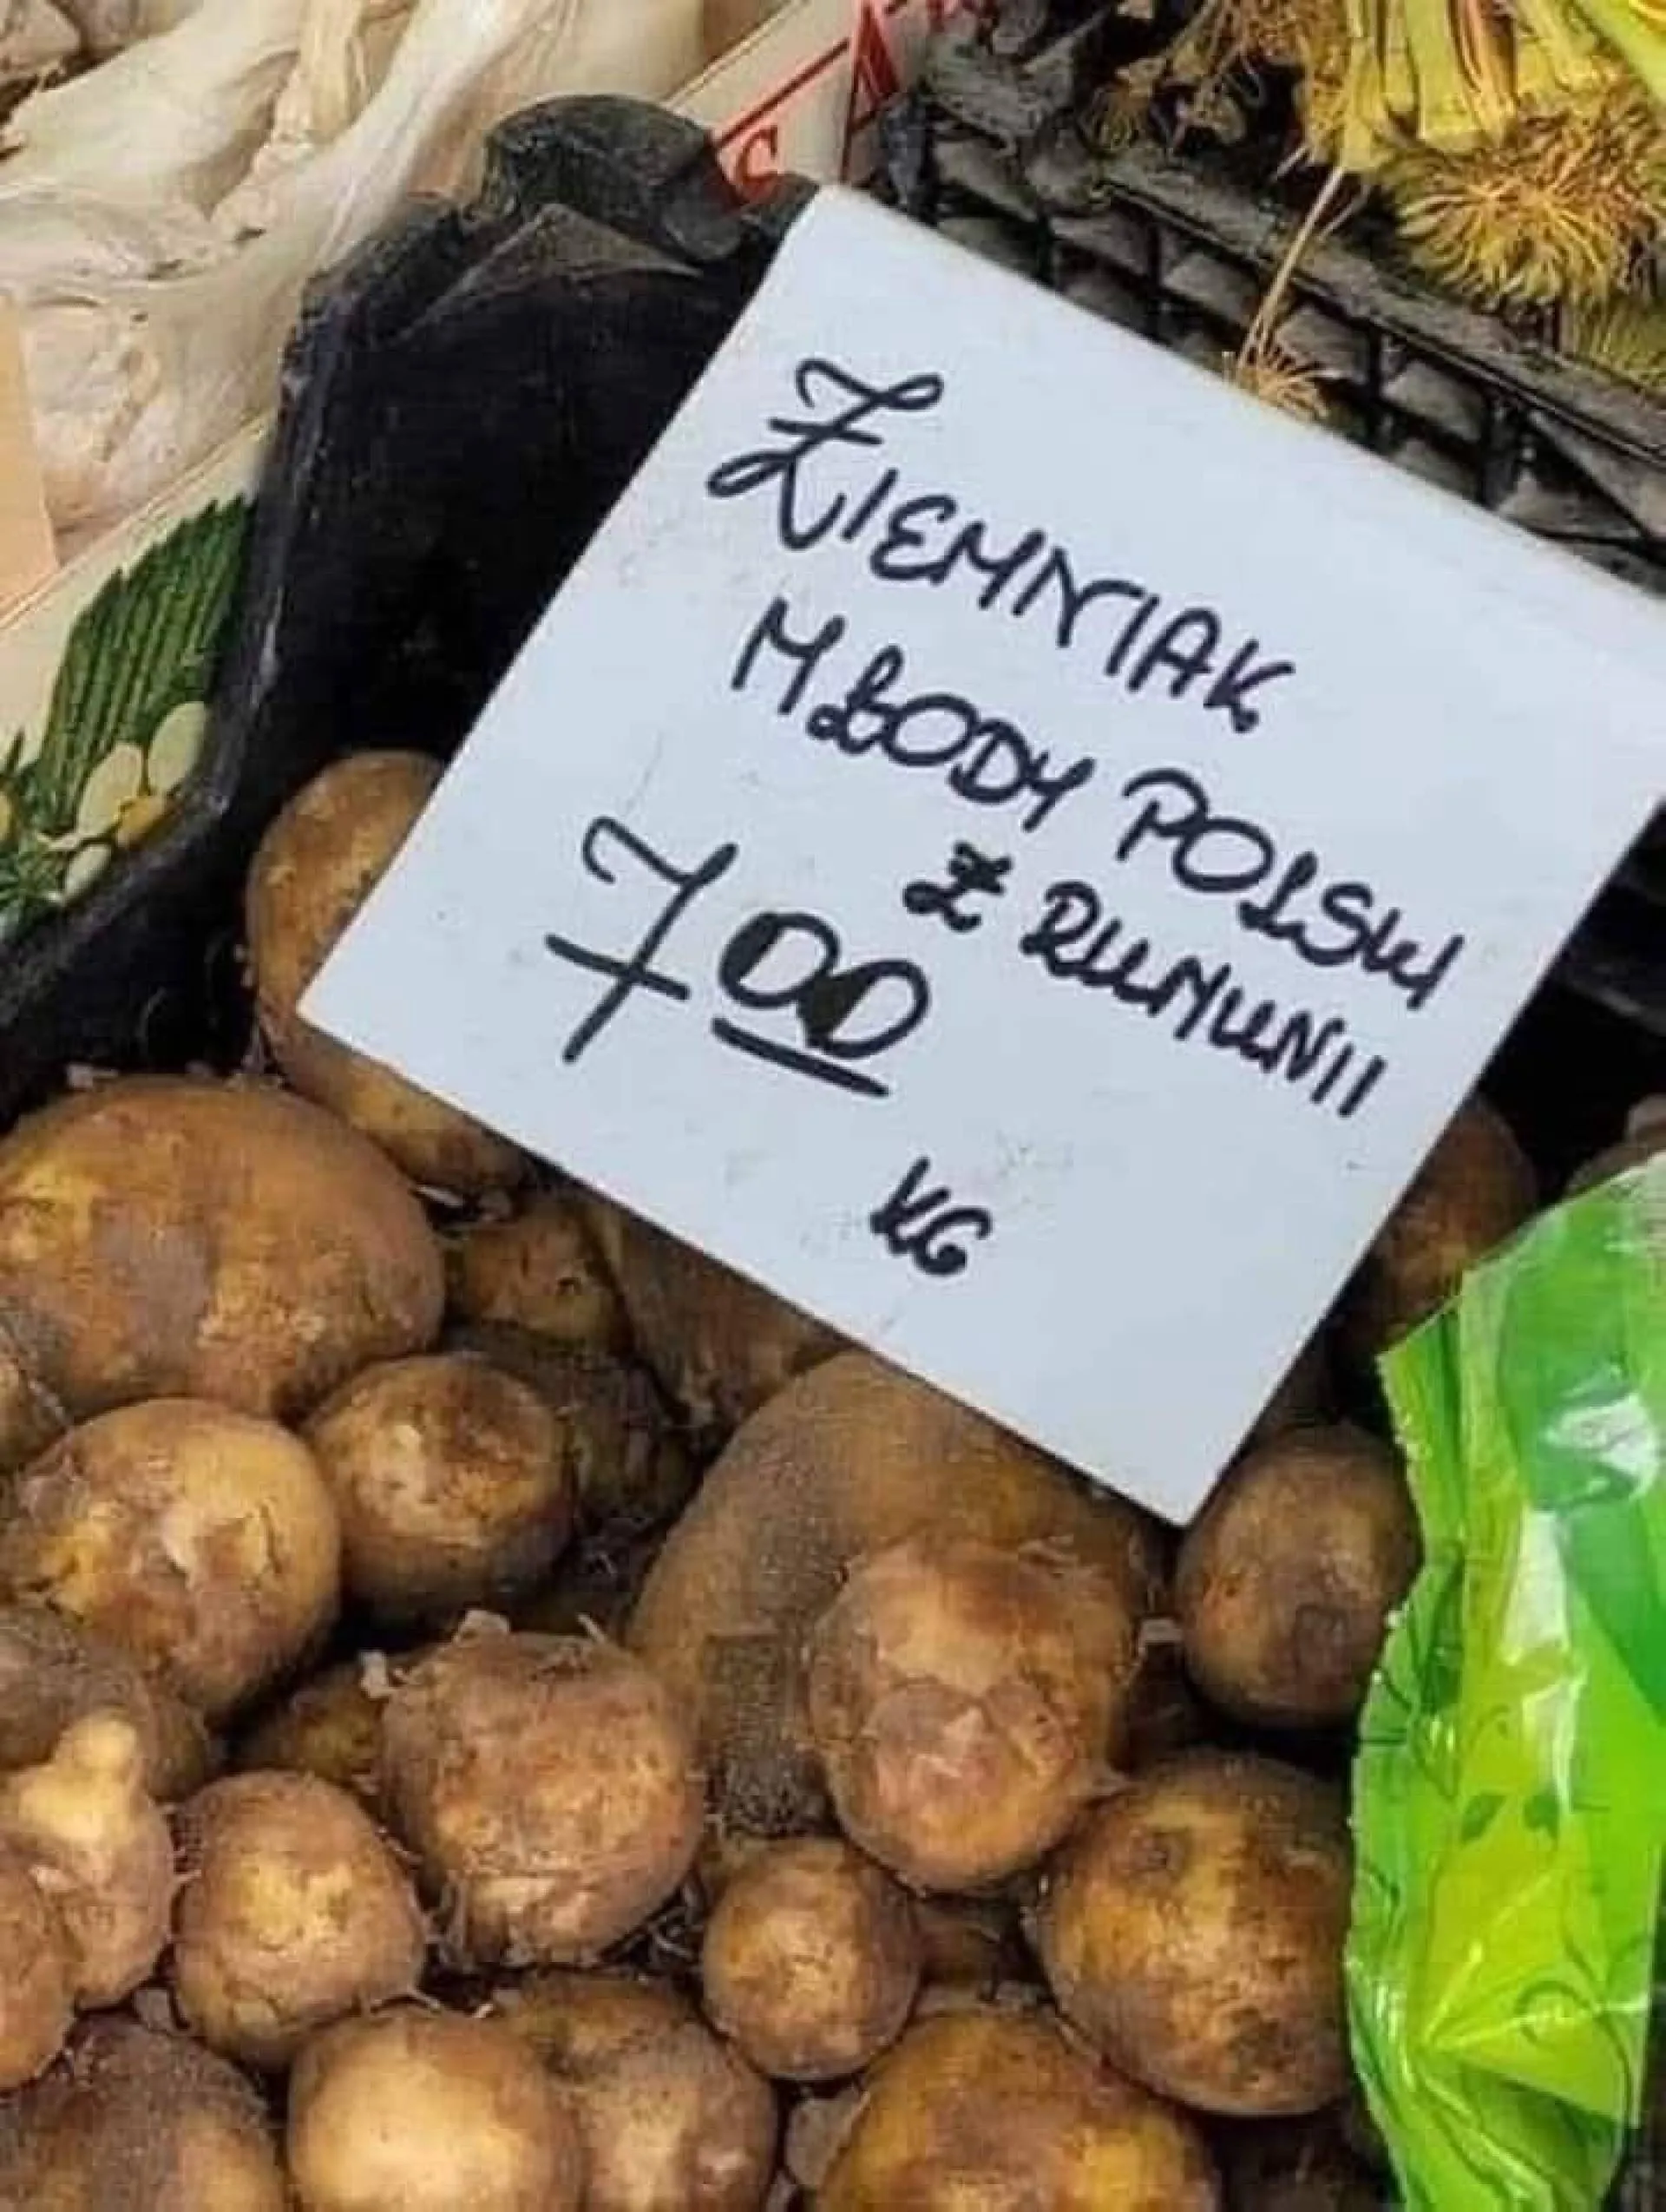 ZIEMNIAK
MŁODY POLSKI
Z RUMUNII
7,00
KG